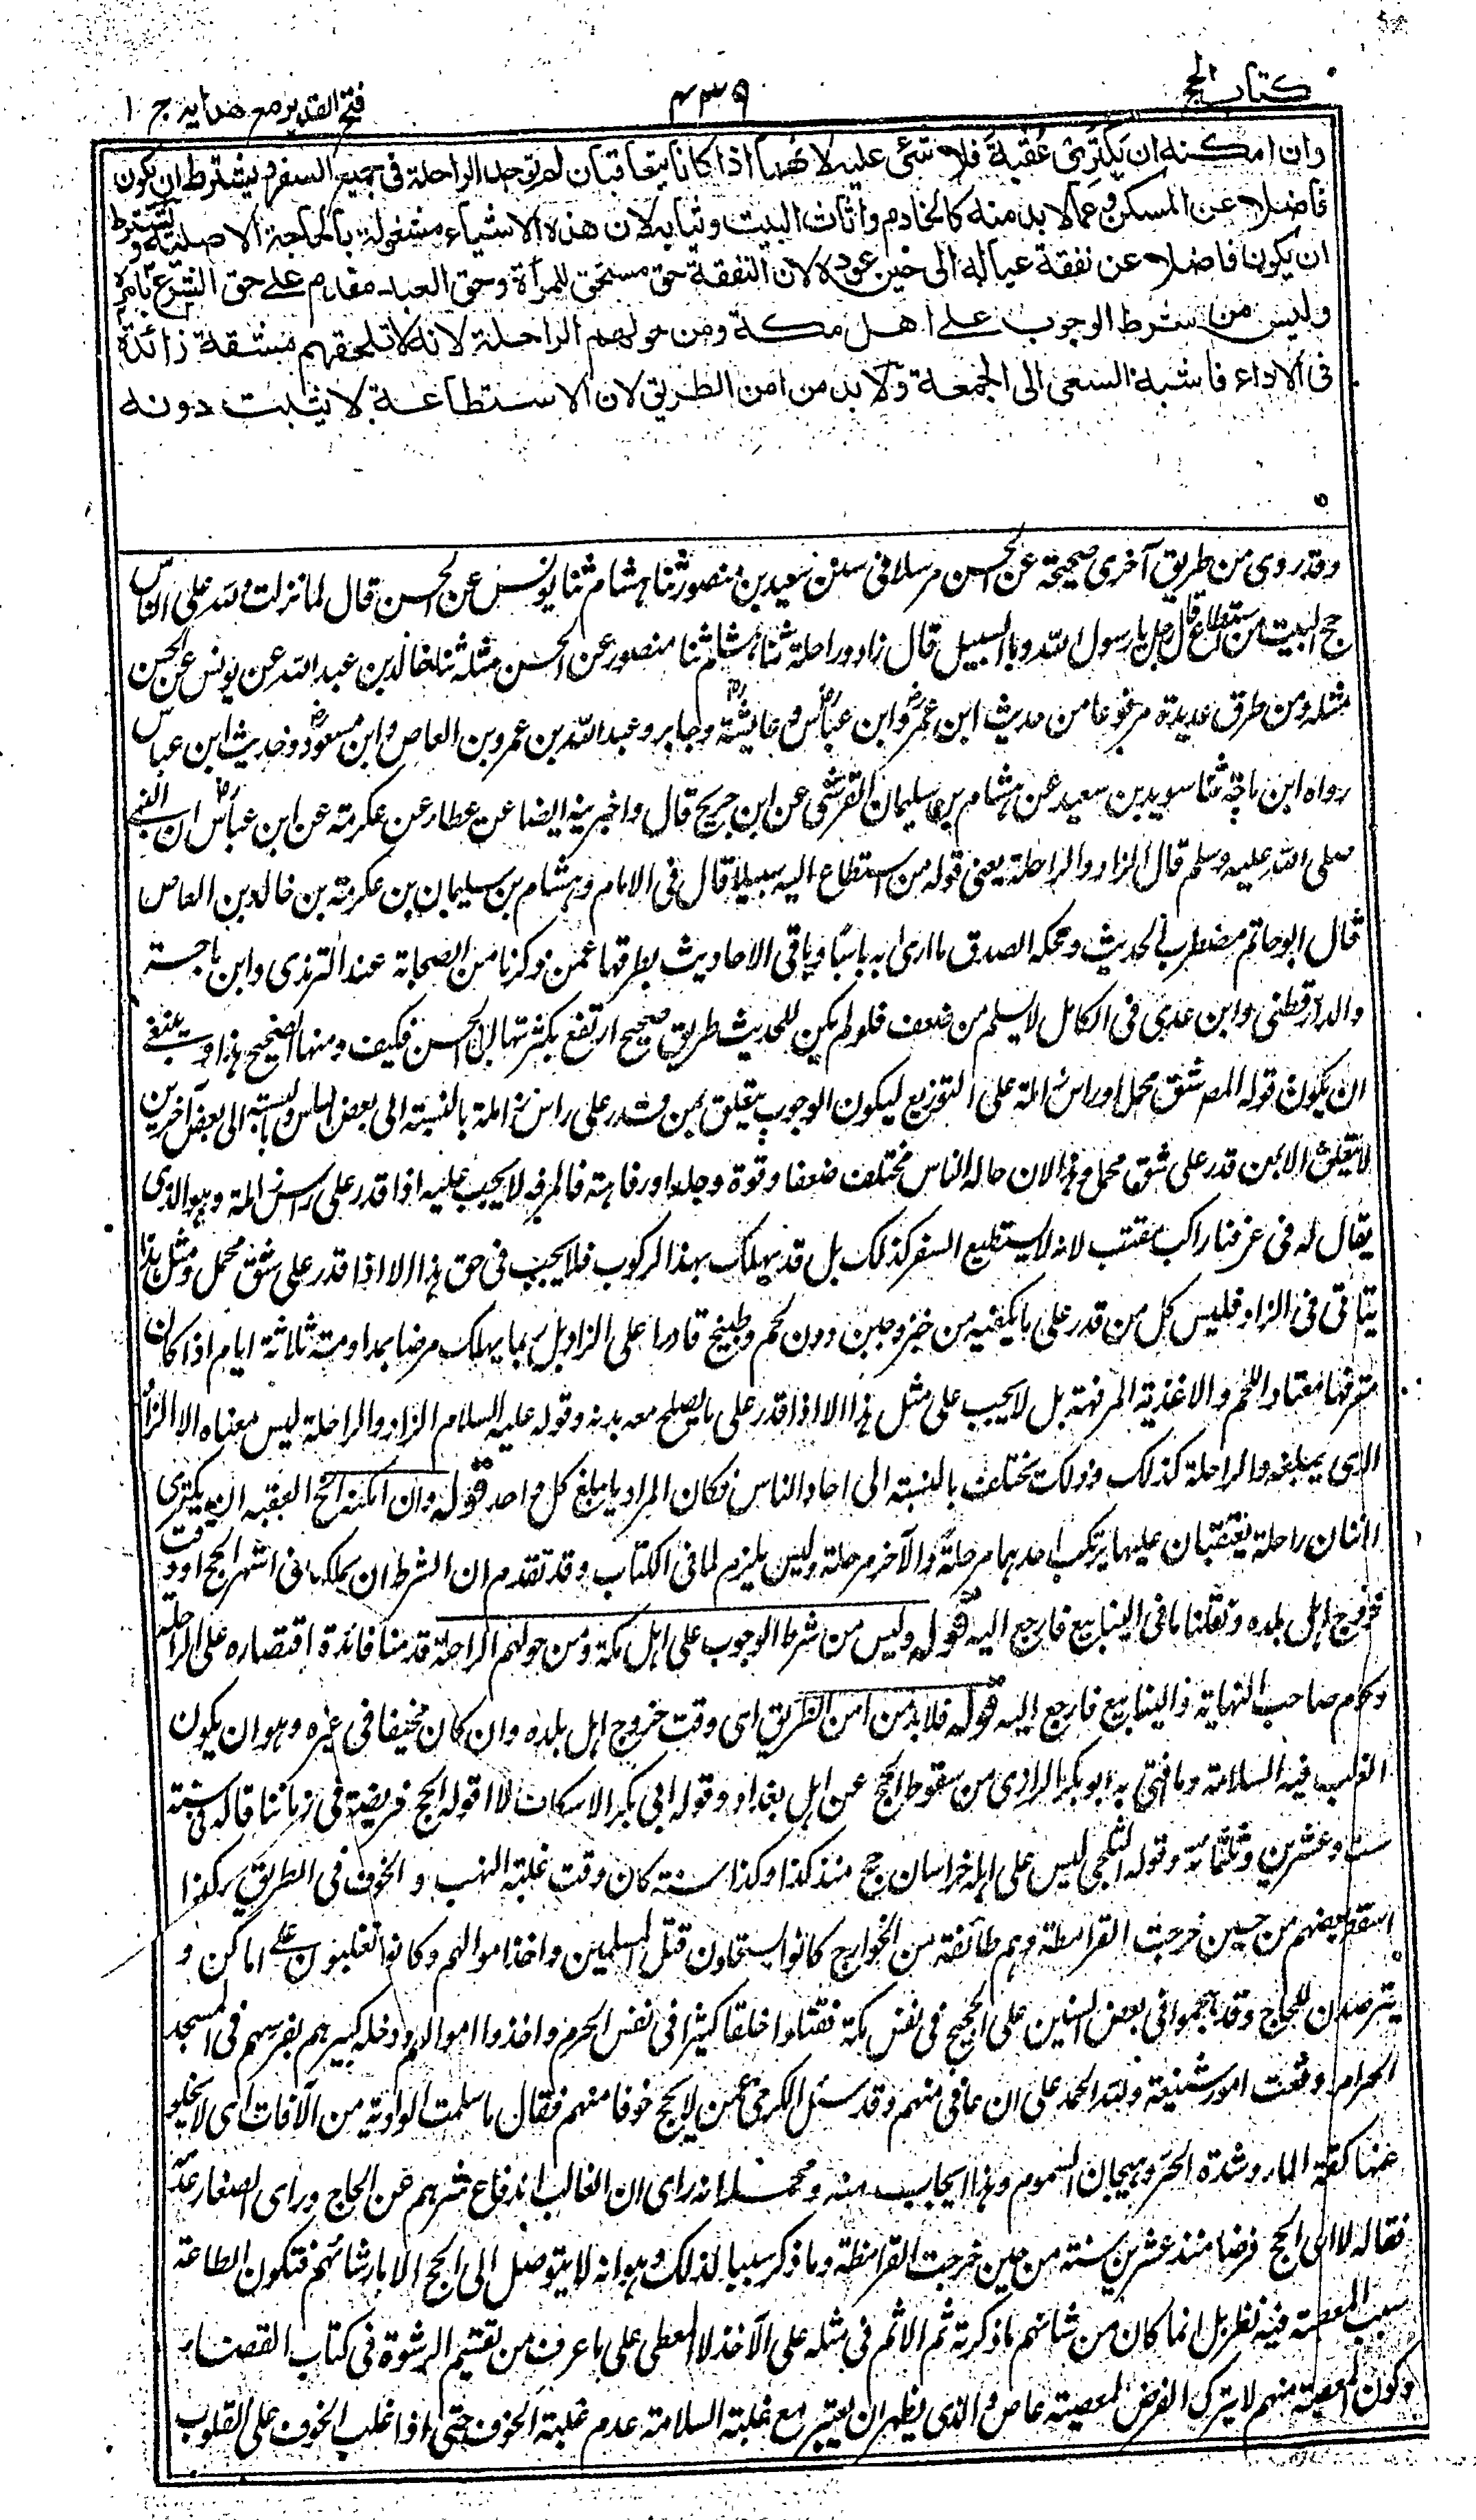 كتاب الحج
٤٣٩
فتح القدير مع هدايه ج ١
وان امكنه ان يكترى عقبة فلا شئ عليه لانهما اذا كانا يتعاقبان لم توجد الراحلة فى جميع السفر ويشترط ان يكون
فاضلا عن المسكن وعما لا بد منه كالخادم واثاث البيت وثيابه لان هذه الاشياء مشغولة بالحاجة الاصلية ويشترط
ان يكون فاضلا عن نفقة عياله الى حين عوده لان النفقة حق مستحق للمرأة وحق العبد مقدم على حق الشرع بامره
وليس من شرط الوجوب على اهل مكة ومن حولهم الراحلة لانه لا تلحقهم مشقة زائدة
فى الاداء فاشبه السعى الى الجمعة ولا بد من امن الطريق لان الاستطاعة لا يثبت دونه
وقد روى من طريق آخرى صحيحة عن الحسن مرسلا فى سنن سعيد بن منصور ثنا هشام ثنا يونس عن الحسن قال لما نزلت ولله على الناس
حج البيت من استطاع قال رجل يا رسول الله وما السبيل قال زاد وراحلة ثنا هشام ثنا منصور عن الحسن مثله ثنا خالد بن عبد الله عن يونس عن الحسن
مثله ومن طرق عديدة مرفوعا من حديث ابن عمر وابن عباس وعايشة وجابر وعبد الله بن عمرو بن العاص وابن مسعود وحديث ابن عباس
رواه ابن ماجة ثنا سويد بن سعيد عن هشام بن سليمان القرشى عن ابن جريج قال واخبرنيه ايضا عن عطار عن عكرمة عن ابن عباس ان النبى
صلى الله عليه وسلم قال الزاد والراحلة يعنى قوله من استطاع اليه سبيلا قال فى الامام وهشام بن سليمان بن عكرمة بن خالد بن العاص
قال ابو حاتم مضطرب الحديث ومحله الصدق ما ارى به باسا وباقى الاحاديث بطرقها عمن ذكرنا من الصحابة عند الترمذى وابن ماجة
والدارقطنى وابن عدى فى الكامل لا يسلم من ضعف فلو لم يكن للحديث طريق صحيح ارتفع بكثرتها الى الحسن فكيف ومنها الصحيح هذا وينبغى
ان يكون قوله المص شق محمل او راس زاملة على التوزيع ليكون الوجوب يتعلق بمن قدر على راس زاملة بالنسبة الى بعض الناس وبالنسبة الى بعض آخرين
لا يتعلق الا بمن قدر على شق محمل وهذا لان حال الناس مختلف ضعفا وقوة وجلدا ورفاهة فالمرفه لا يجب عليه اذا قدر على راس زاملة وهو الذى
يقال له فى عرفنا راكب مقتب لانه لا يستطيع السفر كذلك بل قد يهلك بهذا الركوب فلا يجب فى حق هذا الا اذا قدر على شق محمل ومثل هذا
يتاتى فى الزاد فليس كل من قدر على ما يكفيه من خبز وجبن دون لحم وطبيخ قادرا على الزاد بل ربما يهلك مرضا بمداومته ثلاثة ايام اذا كان
مترفها معتاد اللحم والاغذية المرفهة بل لا يجب على مثل هذا الا اذا قدر على ما يصلح معه بدنه وقوله عليه السلام الزاد والراحلة ليس معناه الا الزاد
الذى يبلغه والراحلة كذلك وذلك يختلف بالنسبة الى احاد الناس فكان المراد ما يبلغ كل واحد قوله وان امكنه الخ العقبه ان يكترى
اثنان راحلة يعتقبان عليها يركب احدهما مرحلة والآخر مرحلة وليس يلزم لما فى الكتاب وقد تقدم ان الشرط ان يملكها فى اشهر الحج او وقت
خروج اهل بلده ونقلنا ما فى الينابيع فارجع اليه قوله وليس من شرط الوجوب على اهل مكة ومن حولهم الراحلة قدمنا فائدة اقتصاره على الراحلة
وكلام صاحب النهاية والينابيع فارجع اليه قوله فلا بد من امن الطريق اى وقت خروج اهل بلده وان كان مخيفا فى غيره وهو ان يكون
الغالب فيه السلامة وما افتى به ابو بكر الرازى من سقوط الحج عن اهل بغداد وقوله ابى بكر الاسكاف لا اقول الحج فريضة فى زماننا قاله فى سنة
ست وعشرين وثلثمائة وقوله الثلجى ليس على اهل خراسان حج منذ كذا وكذا سنة كان وقت غلبة النهب و الخوف فى الطريق وكذا
اسقط بعضهم من حين خرجت القرامطة وهم طائفة من الخوارج كانوا يستحلون قتل المسلمين واخذ اموالهم وكانوا يغلبون على اماكن و
يترصدون للحاج وقد هجموا فى بعض السنين على الحجيج فى نفس مكة فقتلوا خلقا كثيرا فى نفس الحرم واخذوا اموالهم ودخل كبيرهم بفرسه فى المسجد
الحرام ووقعت امور شنيعة ولله الحمد على ان عافى منهم وقد سئل الكرخى عمن لا يحج خوفا منهم فقال ما سلمت البادية من الآفات اى لا يخلو
عنها كقلة الماء وشدة الحر وهيجان السموم وهذا ايجاب منه ومحمله انه راى ان الغالب اندفاع شرهم عن الحاج وراى الصفار عدمه
فقال لا ارى الحج فرضا منذ عشرين سنة من حين خرجت القرامطة وما ذكر سببا لذلك وهو انه لا يتوصل الى الحج الا بارشائهم فتكون الطاعة
سبب المعصية فيه نظر بل انما كان من شانهم ما ذكرته ثم الاثم فى مثله على الآخذ لا المعطى على ما عرف من تقسيم الرشوة فى كتاب القضاء
وكون المعصية منهم لا يترك الفرض لمعصية عاص والذى يظهر ان يعتبر مع غلبة السلامة عدم غلبة الخوف حتى اذا غلب الخوف على القلوب